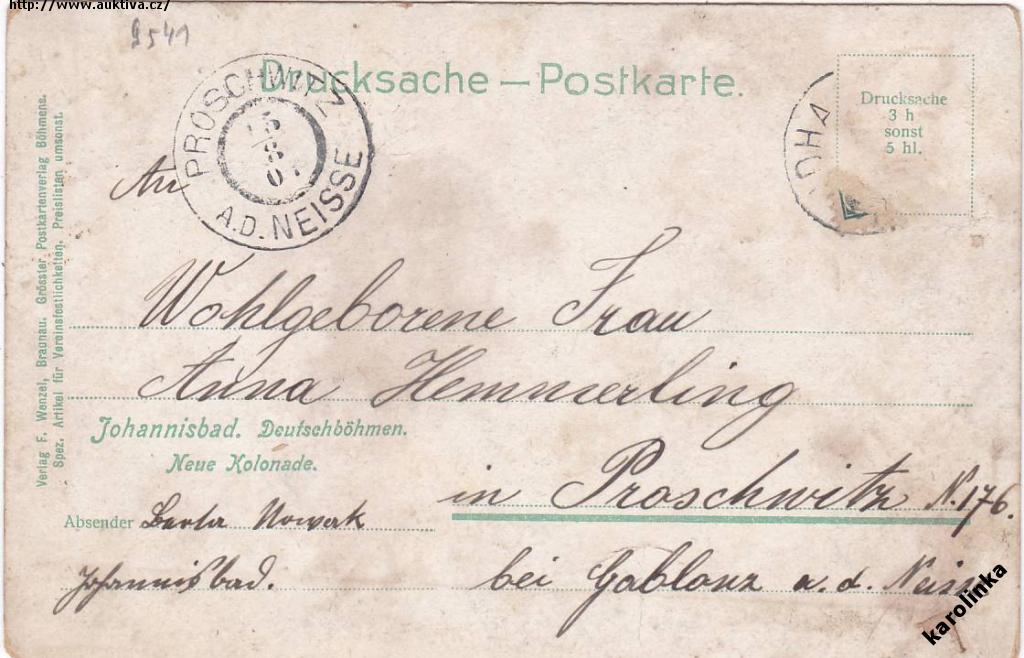 http://www.auktiva.cz/
9541
Drucksache – Postkarte.
PROSCHWITZ
5
8
0
A.D. NEISSE
Drucksache
3 h
sonst
5 hl.
OHA
An
Wohlgeborene Frau
Anna Hemmerling
in Proschwitz N. 176.
bei Gablonz a. d. Neisse
Johannisbad. Deutschböhmen.
Neue Kolonade.
Absender Berta Nowak
Johannisbad.
Verlag F. Wenzel, Braunau. Grösster Postkartenverlag Böhmens.
Spez. Artikel für Vereinsfestlichkeiten. Preislisten umsonst.
karolinka